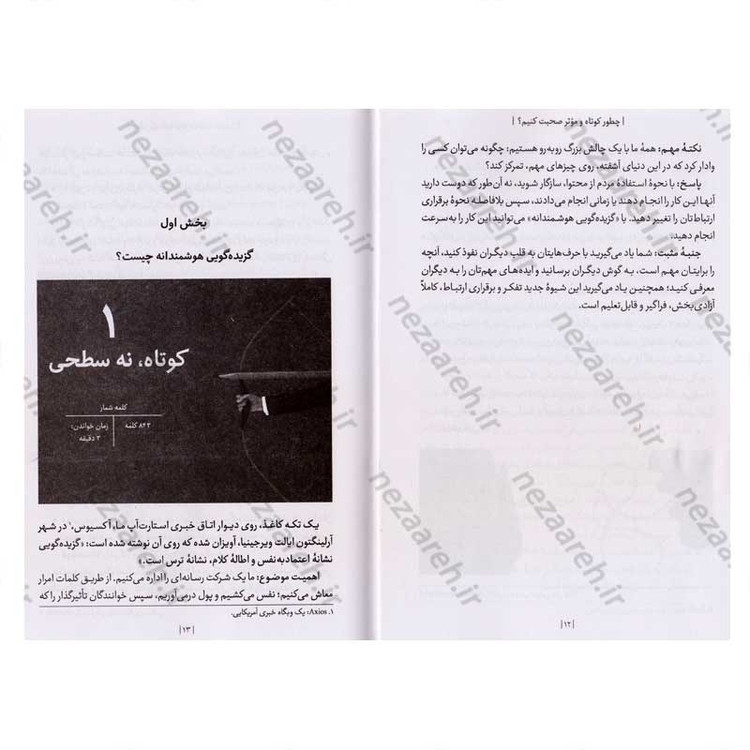 | چطور کوتاه و مؤثر صحبت کنیم؟ |
نکتهٔ مهم: همهٔ ما با یک چالش بزرگ روبه‌رو هستیم: چگونه می‌توان کسی را
وادار کرد که در این دنیای آشفته، روی چیزهای مهم، تمرکز کند؟
پاسخ: با نحوهٔ استفادهٔ مردم از محتوا، سازگار شوید، نه آن‌طور که دوست دارید
آنها این کار را انجام دهند یا زمانی انجام می‌دادند، سپس بلافاصله نحوهٔ برقراری
ارتباطتان را تغییر دهید. با «گزیده‌گویی هوشمندانه» می‌توانید این کار را به‌سرعت
انجام دهید.
جنبهٔ مثبت: شما یاد می‌گیرید با حرف‌هایتان به قلب دیگران نفوذ کنید، آنچه
را برایتان مهم است، به گوش دیگران برسانید و ایده‌های مهم‌تان را به دیگران
معرفی کنید؛ همچنین یاد می‌گیرید این شیوهٔ جدید تفکر و برقراری ارتباط، کاملاً
آزادی‌بخش، فراگیر و قابل‌تعلیم است.
| ۱۲ |
بخش اول
گزیده‌گویی هوشمندانه چیست؟
۱
کوتاه، نه سطحی
کلمه شمار
۸۴۲ کلمه
زمان خواندن:
۳ دقیقه
یک تکه کاغذ، روی دیوار اتاق خبری استارت‌آپ ما، آکسیوس،۱ در شهر
آرلینگتون ایالت ویرجینیا، آویزان شده که روی آن نوشته شده است: «گزیده‌گویی
نشانهٔ اعتمادبه‌نفس و اطالهٔ کلام، نشانهٔ ترس است.»
اهمیت موضوع: ما یک شرکت رسانه‌ای را اداره می‌کنیم. از طریق کلمات امرار
معاش می‌کنیم؛ نفس می‌کشیم و پول درمی‌آوریم، سپس خوانندگان تأثیرگذار را که
۱. Axios: یک وبگاه خبری آمریکایی.
| ۱۳ |
nezaareh.ir
nezaareh.ir
nezaareh.ir
nezaareh.ir
nezaareh.ir
nezaareh.ir